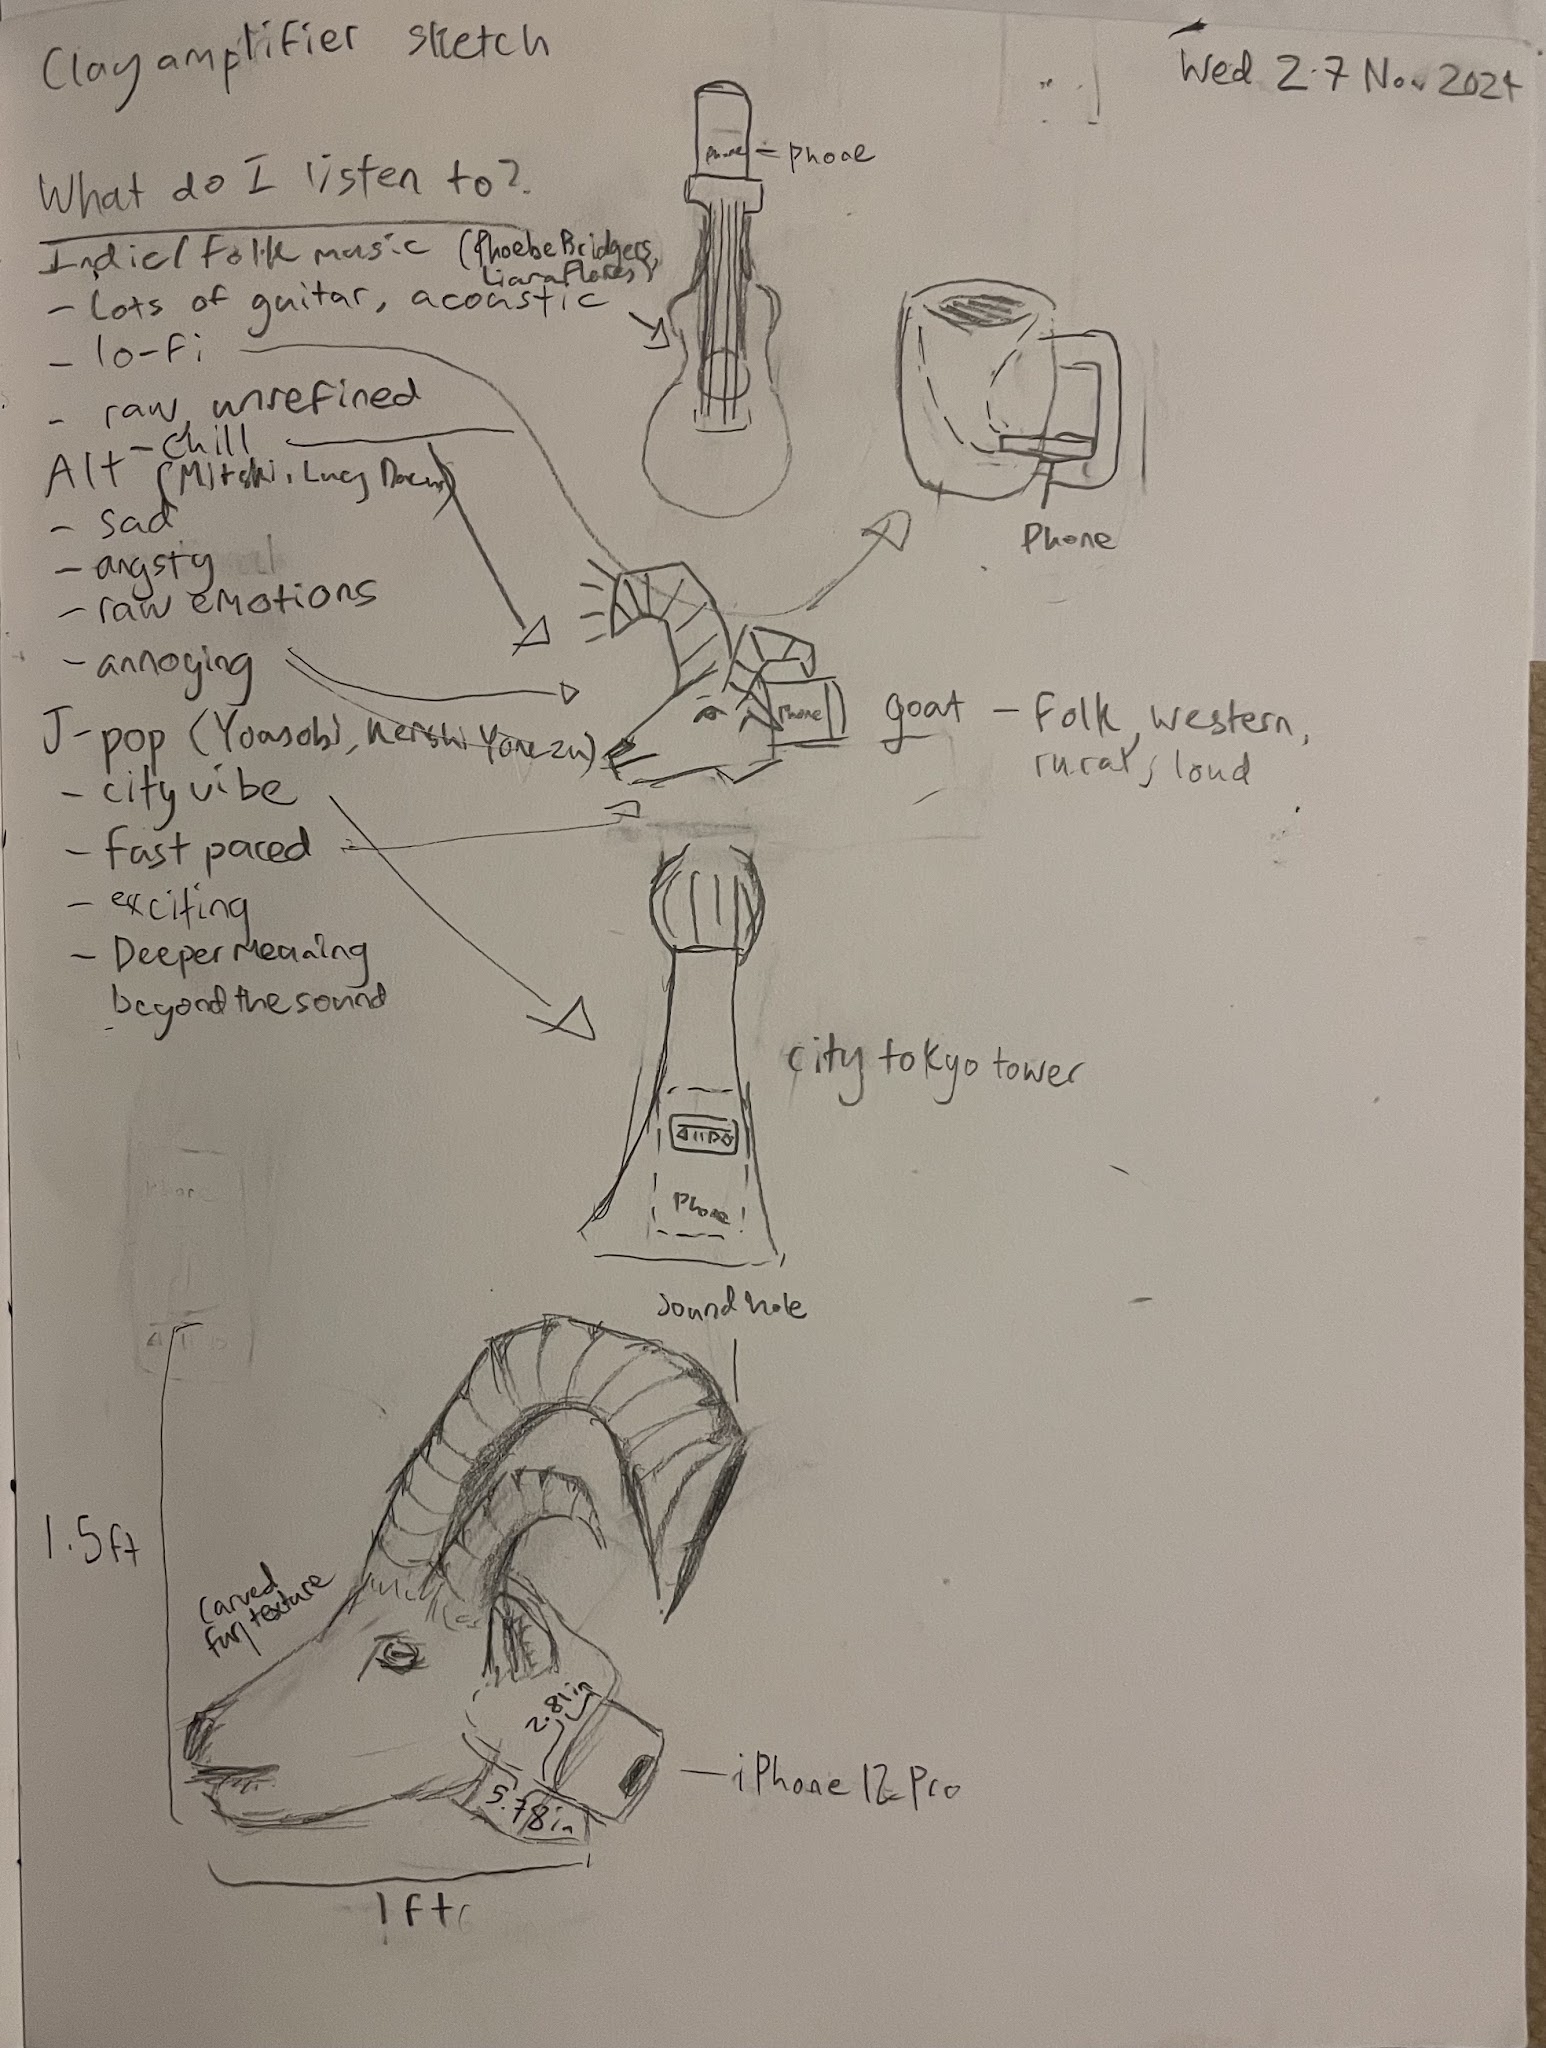 Clay amplifier sketch
Wed 27 Nov 2024
What do I listen to?
Indie/folk music (Phoebe Bridgers,
Liana Flores)
- lots of guitar, acoustic
- lo-fi
- raw, unrefined
- chill
Alt (Mitski, Lucy Dacus)
- sad
- angsty
- raw emotions
- annoying
J-pop (Yoasobi, Kenshi Yonezu)
- city vibe
- fast paced
- exciting
- Deeper meaning
beyond the sound
phone
- phone
Phone
phone
goat - folk, western,
rural, loud
city tokyo tower
Phone
sound hole
1.5ft
carved
fur texture
2.81in
5.78in
- iPhone 12 Pro
1ft